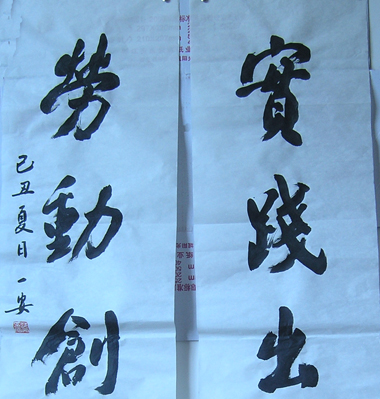 實踐出
勞動創
己丑夏日一安